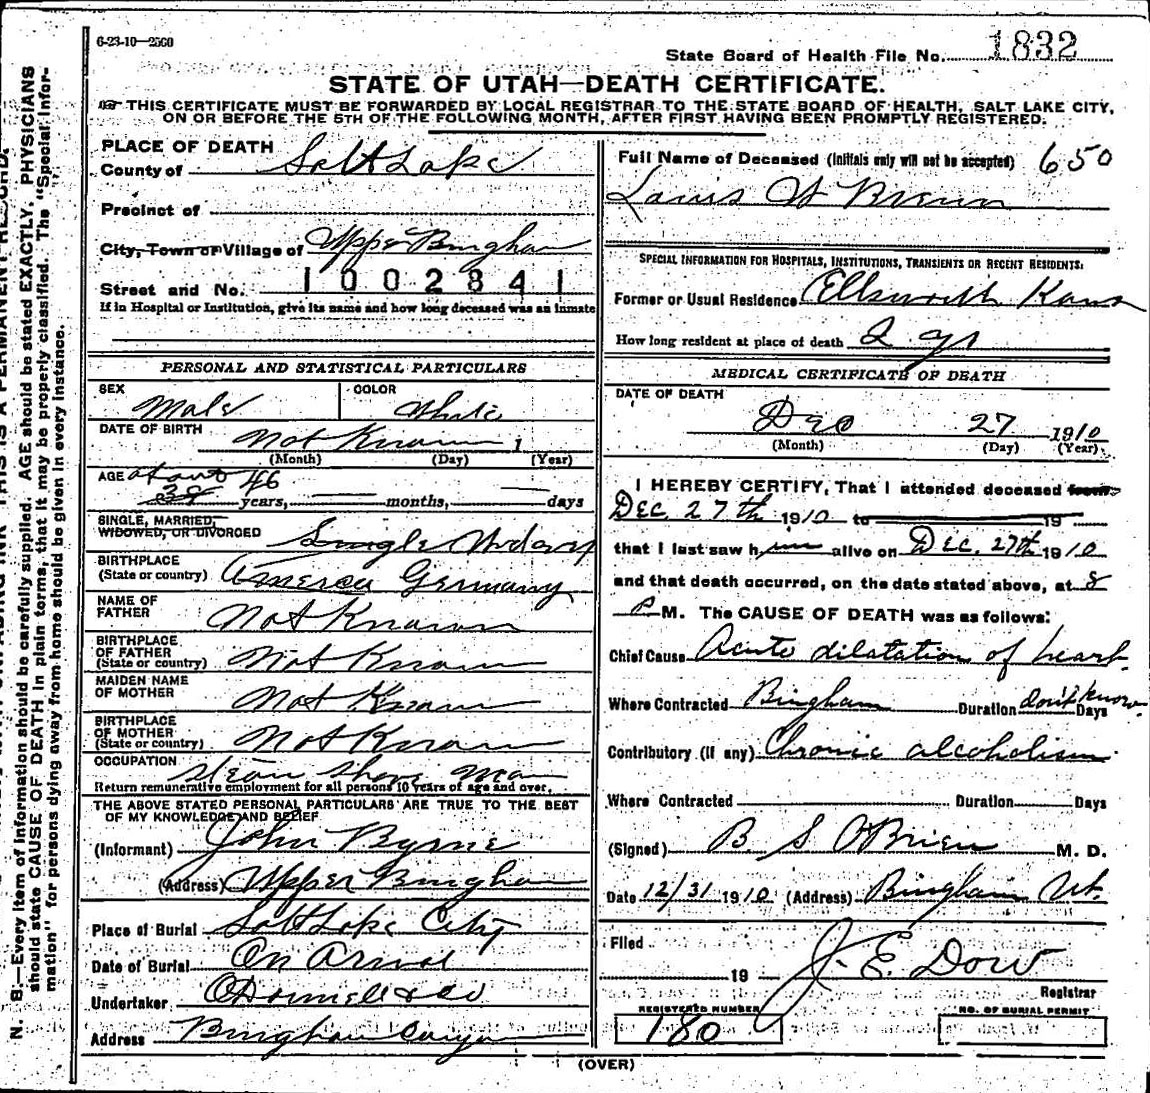 6-23-10—2500
State Board of Health File No. 1832
STATE OF UTAH—DEATH CERTIFICATE.
THIS CERTIFICATE MUST BE FORWARDED BY LOCAL REGISTRAR TO THE STATE BOARD OF HEALTH, SALT LAKE CITY,
ON OR BEFORE THE 5TH OF THE FOLLOWING MONTH, AFTER FIRST HAVING BEEN PROMPTLY REGISTERED.
PLACE OF DEATH
County of Salt Lake
Precinct of
City, Town or Village of Upper Bingham
Street and No. 1002841
If in Hospital or Institution, give its name and how long deceased was an inmate
PERSONAL AND STATISTICAL PARTICULARS
SEX Male COLOR White
DATE OF BIRTH Not Known 1
(Month) (Day) (Year)
AGE about 46
38 years, — months, — days
SINGLE, MARRIED,
WIDOWED, OR DIVORCED Single
BIRTHPLACE
(State or country) America Germany
NAME OF
FATHER Not Known
BIRTHPLACE
OF FATHER
(State or country) Not Known
MAIDEN NAME
OF MOTHER Not Known
BIRTHPLACE
OF MOTHER
(State or country) Not Known
OCCUPATION Steam Shovel Man
Return remunerative employment for all persons 10 years of age and over.
THE ABOVE STATED PERSONAL PARTICULARS ARE TRUE TO THE BEST
OF MY KNOWLEDGE AND BELIEF
(Informant) John Byrne
(Address) Upper Bingham
Place of Burial Salt Lake City
Date of Burial On Arrival
Undertaker O'Donnell & Co
Address Bingham Canyon
Full Name of Deceased (Initials only will not be accepted) 650
Louis W
SPECIAL INFORMATION FOR HOSPITALS, INSTITUTIONS, TRANSIENTS OR RECENT RESIDENTS:
Former or Usual Residence Ellsworth Kans
How long resident at place of death 2 yrs
MEDICAL CERTIFICATE OF DEATH
DATE OF DEATH
Dec 27 1910
(Month) (Day) (Year)
I HEREBY CERTIFY, That I attended deceased from
Dec 27th 1910 to 19
that I last saw him alive on Dec. 27th 1910
and that death occurred, on the date stated above, at 8
P M. The CAUSE OF DEATH was as follows:
Chief Cause Acute dilatation of heart.
Where Contracted Bingham Duration don't know Days
Contributory (if any) Chronic alcoholism
Where Contracted Duration Days
(Signed) B S O'Brien M. D.
Date 12/31 1910 (Address) Bingham Ut.
Filed
19 J. E. Dow
Registrar
REGISTERED NUMBER
180
NO. OF BURIAL PERMIT
(OVER)
N. B.—Every item of information should be carefully supplied. AGE should be stated EXACTLY. PHYSICIANS
should state CAUSE OF DEATH in plain terms, that it may be properly classified. The "Special Infor-
mation" for persons dying away from home should be given in every instance.